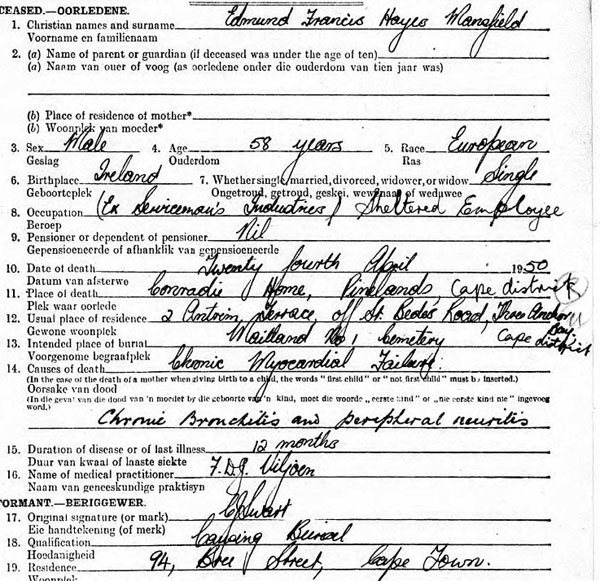 CEASED.—OORLEDENE.
1. Christian names and surname Edmund Francis Hayes Mansfield
Voornome en familienaam
2. (a) Name of parent or guardian (if deceased was under the age of ten)
(a) Naam van ouer of voog (as oorledene onder die ouderdom van tien jaar was)
(b) Place of residence of mother*
(b) Woonplek van moeder*
3. Sex Male 4. Age 58 years 5. Race European
Geslag Ouderdom Ras
6. Birthplace Ireland 7. Whether single, married, divorced, widower, or widow Single
Geboorteplek Ongetroud, getroud, geskei, wewenaar of weduwee
8. Occupation (Ex Serviceman's Industries) Sheltered Employee
Beroep
9. Pensioner or dependent of pensioner Nil
Gepensioeneerde of afhanklik van gepensioeneerde
10. Date of death Twenty fourth April 1950
Datum van afsterwe
11. Place of death Conradie Home, Pinelands, Cape district
Plek waar oorlede
12. Usual place of residence 2 Antrim Terrace, off St. Bede's Road, Three Anchor Bay
Gewone woonplek Cape district
13. Intended place of burial Maitland No 1 Cemetery
Voorgenome begraafplek
14. Causes of death Chronic Myocardial Failure
(In the case of the death of a mother when giving birth to a child, the words "first child" or "not first child" must be inserted.)
Oorsake van dood
(In die geval van die dood van 'n moeder by die geboorte van 'n kind, moet die woorde „eerste kind" or „nie eerste kind nie" ingevoeg
word.)
Chronic Bronchitis and peripheral neuritis
15. Duration of disease or of last illness 12 months
Duur van kwaal of laaste siekte
16. Name of medical practitioner F.D.P. Viljoen
Naam van geneeskundige praktisyn
FORMANT.—BERIGGEWER.
17. Original signature (or mark) Swart
Eie handtekening (of merk)
18. Qualification Causing Burial
Hoedanigheid
19. Residence 94, Bree Street, Cape Town.
Woonplek